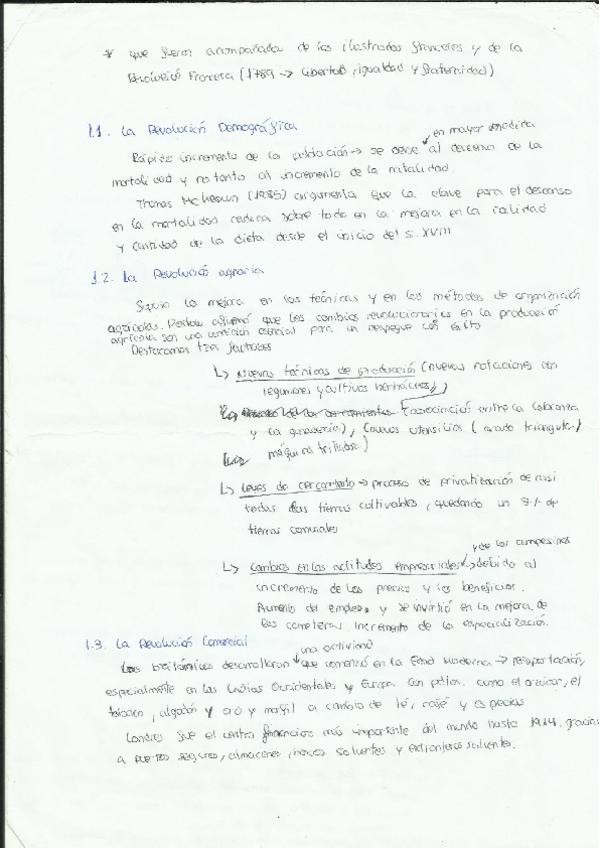 * que fueron acompañada de los ilustrados franceses y de la
Revolució Francesa (1789 → libertad, igualdad y fraternidad)
1.1. La Revolución Demográfica
en mayor medida
Rápido incremento de la población → se debe al descenso de la
mortalidad y no tanto al incremento de la natalidad.
Thomas McKeown (1985) argumenta que la clave para el descenso
en la mortalidad radica sobre todo en la mejora en la calidad
y cantidad de la dieta desde el inicio del s. XVIII
1.2. La Revolució agraria
la mejora en las técnicas y en los métodos de organización
agrícolas. afirmó que los cambios revolucionarios en la producción
agrícola son una condición esencial para un despegue con éxito
Destacamos tres factores
↳ Nuevas técnicas de producción (nuevas rotaciones con
leguminosas y cultivos herbáceos)
(asociació entre la labranza
y la ganadería), (nuevos utensilios (arado triangular,
máquina trilladora)
↳ Leyes de cercamiento → proceso de privatización de casi
todas las tierras cultivables, quedando un 3% de
tierras comunales
y de los campesinos
↳ Cambios en las actitudes empresariales → debido al
incremento de los precios y los beneficios.
Aumento del empleo, y se invirtió en la mejora de
las carreteras incremento de la especialización.
1.3. La Revolución Comercial
una actividad
Los británicos desarrollaron que comenzó en la Edad Moderna → reexportación,
especialmente en las Indias Occidentales y Europa con como el azúcar, el
tabaco, algodón y oro y marfil a cambio de té, café y especias
Londres fue el centro financiero más importante del mundo hasta 1914, gracias
a puertos seguros, almacenes, bancos solventes y extranjeros solventes.